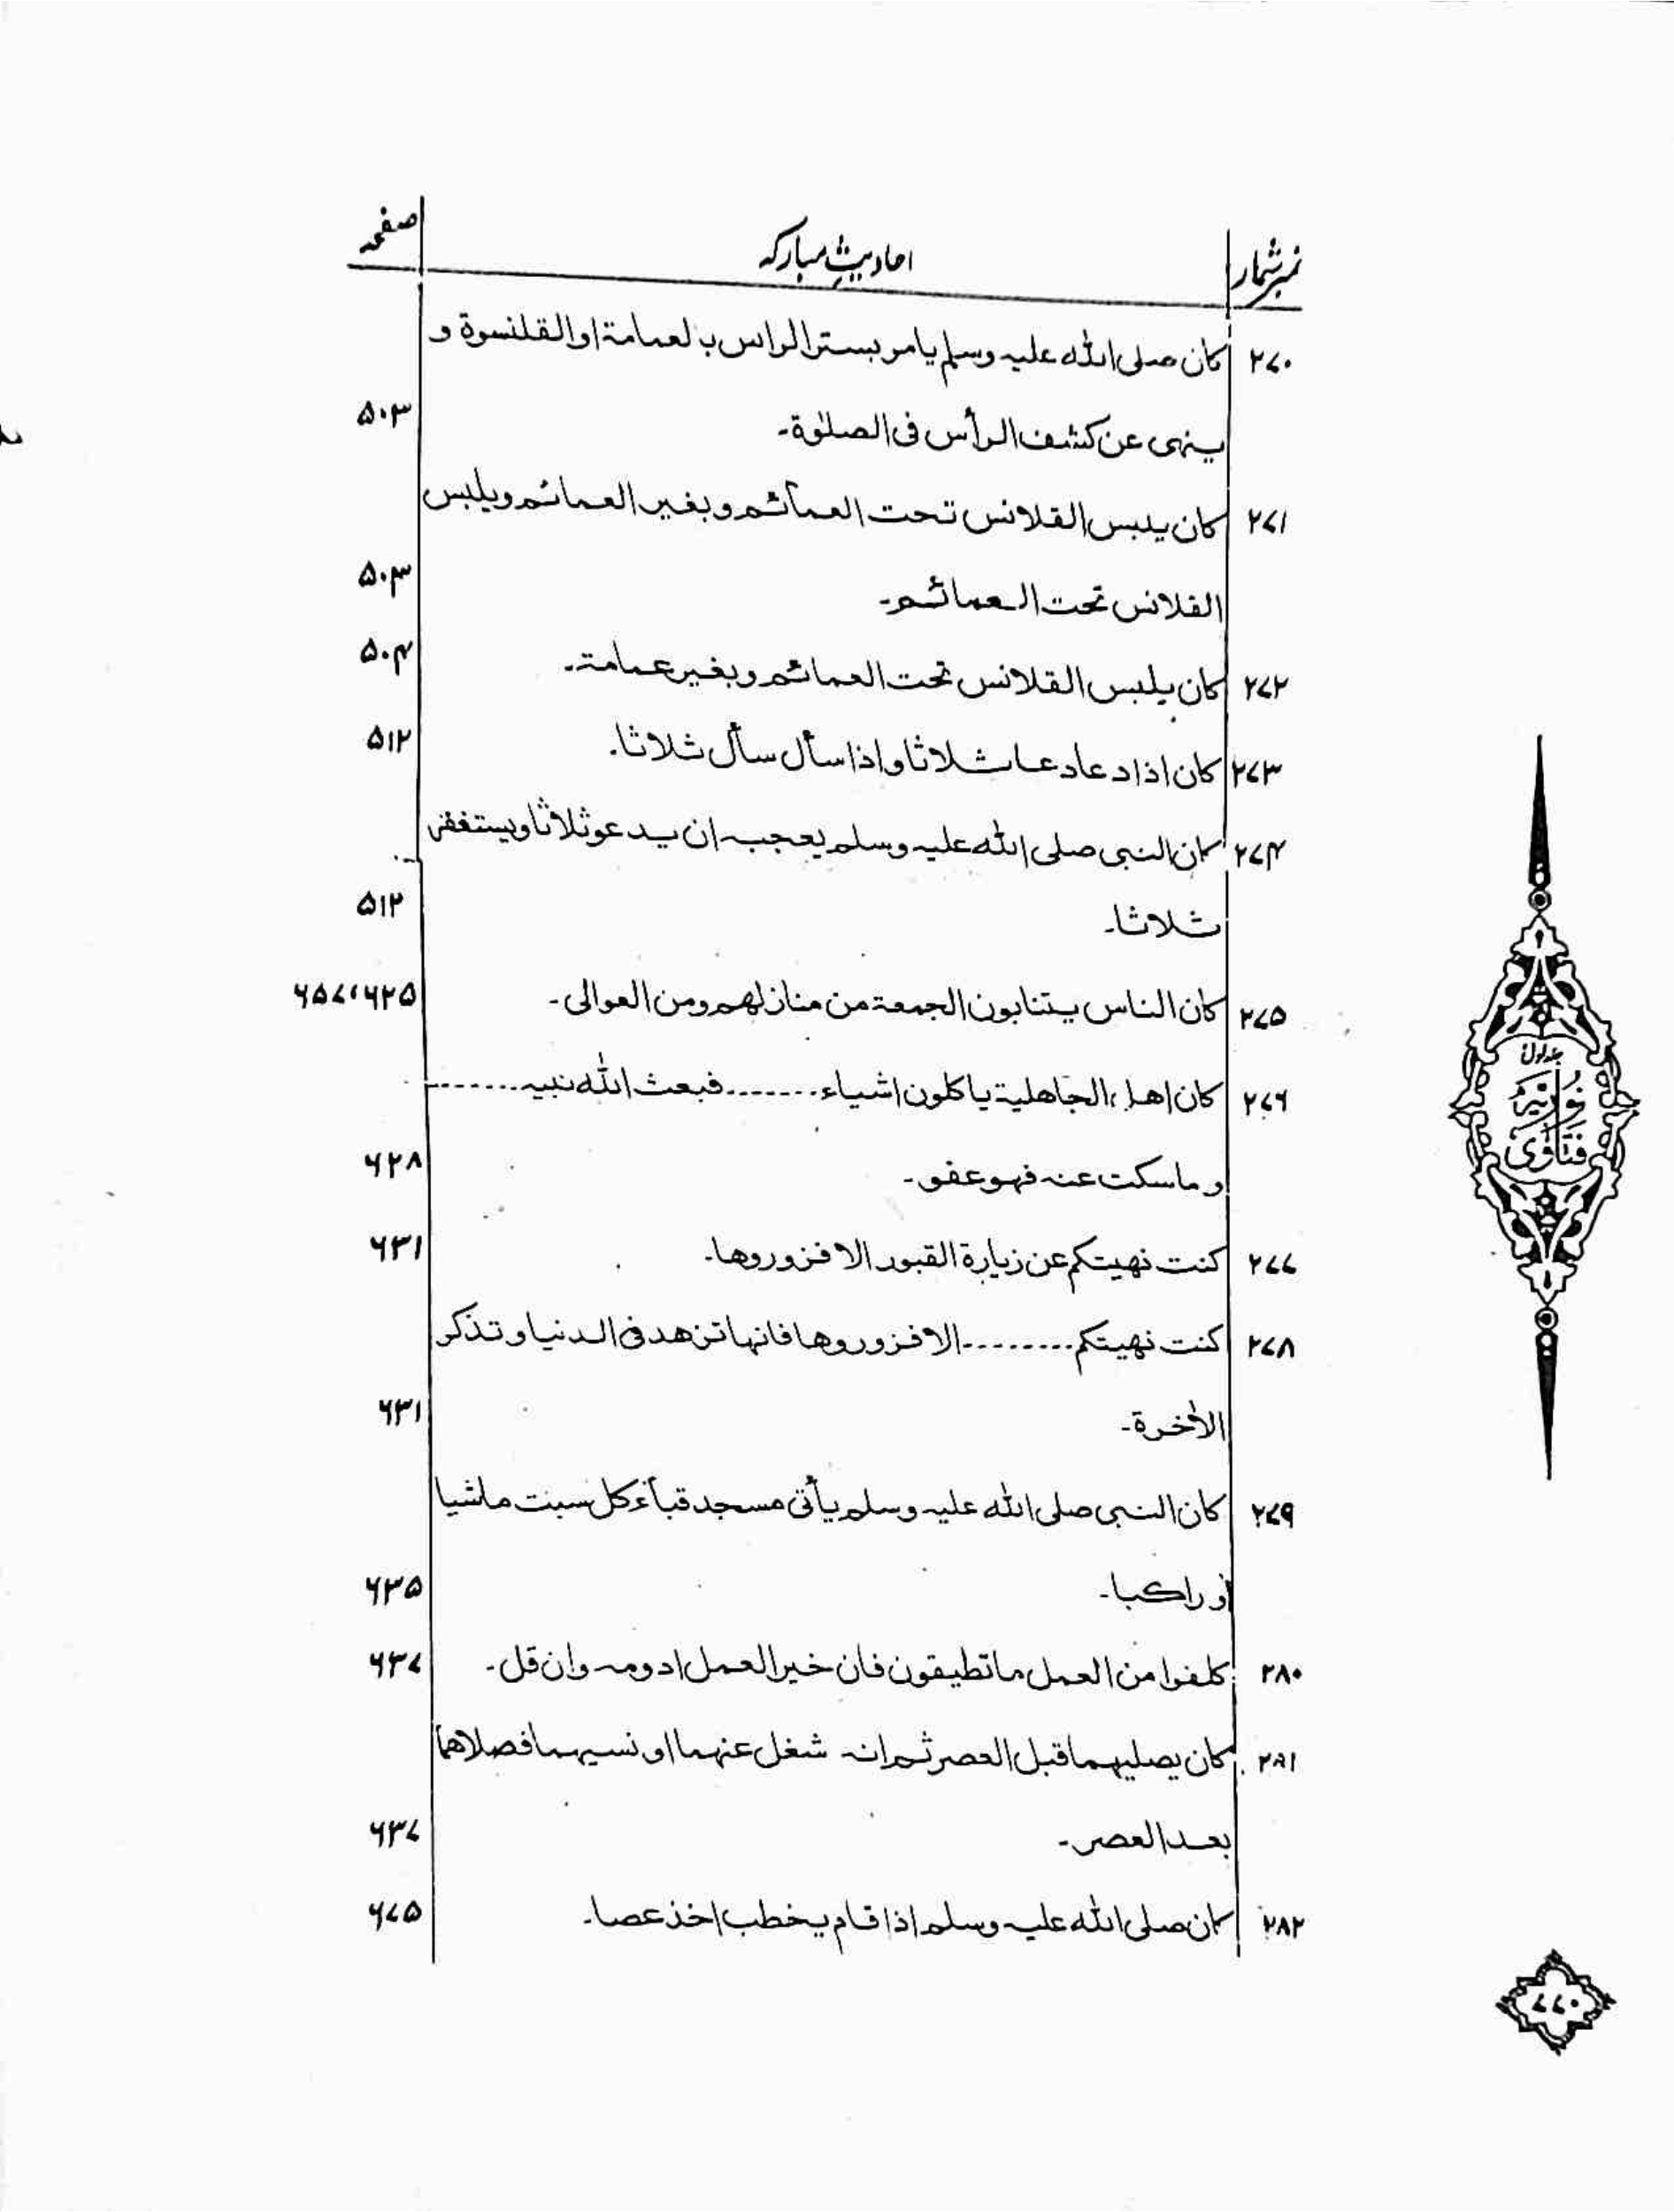 نمبرشمار احادیثِ مبارکہ صفحہ
۲۷۰ کان صلی اللہ علیہ وسلم یامر بستر الراس بالعمامۃ او القلنسوۃ و
ینہی عن کشف الرأس فی الصلوٰۃ۔ ۵۰۳
۲۷۱ کان یلبس القلانس تحت العمآئم و بغیر العمائم ویلبس
القلانس تحت العمائم۔ ۵۰۳
۲۷۲ کان یلبس القلانس تحت العمائم وبغیر عمامۃ۔ ۵۰۴
۲۷۳ کان اذا دعا دعا ثلاثا و اذا سأل سأل ثلاثا۔ ۵۱۲
۲۷۴ کان النبی صلی اللہ علیہ وسلم یعجبہ ان یدعو ثلاثا ویستغفر
ثلاثا۔ ۵۱۲
۲۷۵ کان الناس یتنابون الجمعۃ من منازلھم ومن العوالی۔ ۶۲۵،۶۵۷
۲۷۶ کان اھل الجاھلیۃ یاکلون اشیاء ........ فبعث اللہ نبیہ .......
و ما سکت عنہ فہو عفو۔ ۶۲۸
۲۷۷ کنت نھیتکم عن زیارۃ القبور الا فزوروھا۔ ۶۳۱
۲۷۸ کنت نھیتکم ......... الا فزوروھا فانہا تزھد فی الدنیا و تذکر
الاٰخرۃ۔ ۶۳۱
۲۷۹ کان النبی صلی اللہ علیہ وسلم یأتی مسجد قبآء کل سبت ماشیا
أو راکبا۔ ۶۳۵
۲۸۰ کلفوا من العمل ما تطیقون فان خیر العمل ادومہ وان قل۔ ۶۳۷
۲۸۱ کان یصلیہما قبل العصر ثم انہ شغل عنہما او نسیہما فصلاھما
بعد العصر۔ ۶۳۷
۲۸۲ کان صلی اللہ علیہ وسلم اذا قام یخطب اخذ عصا۔ ۶۷۵
جلد اول
فتاوٰی نوریہ
۷۷۰